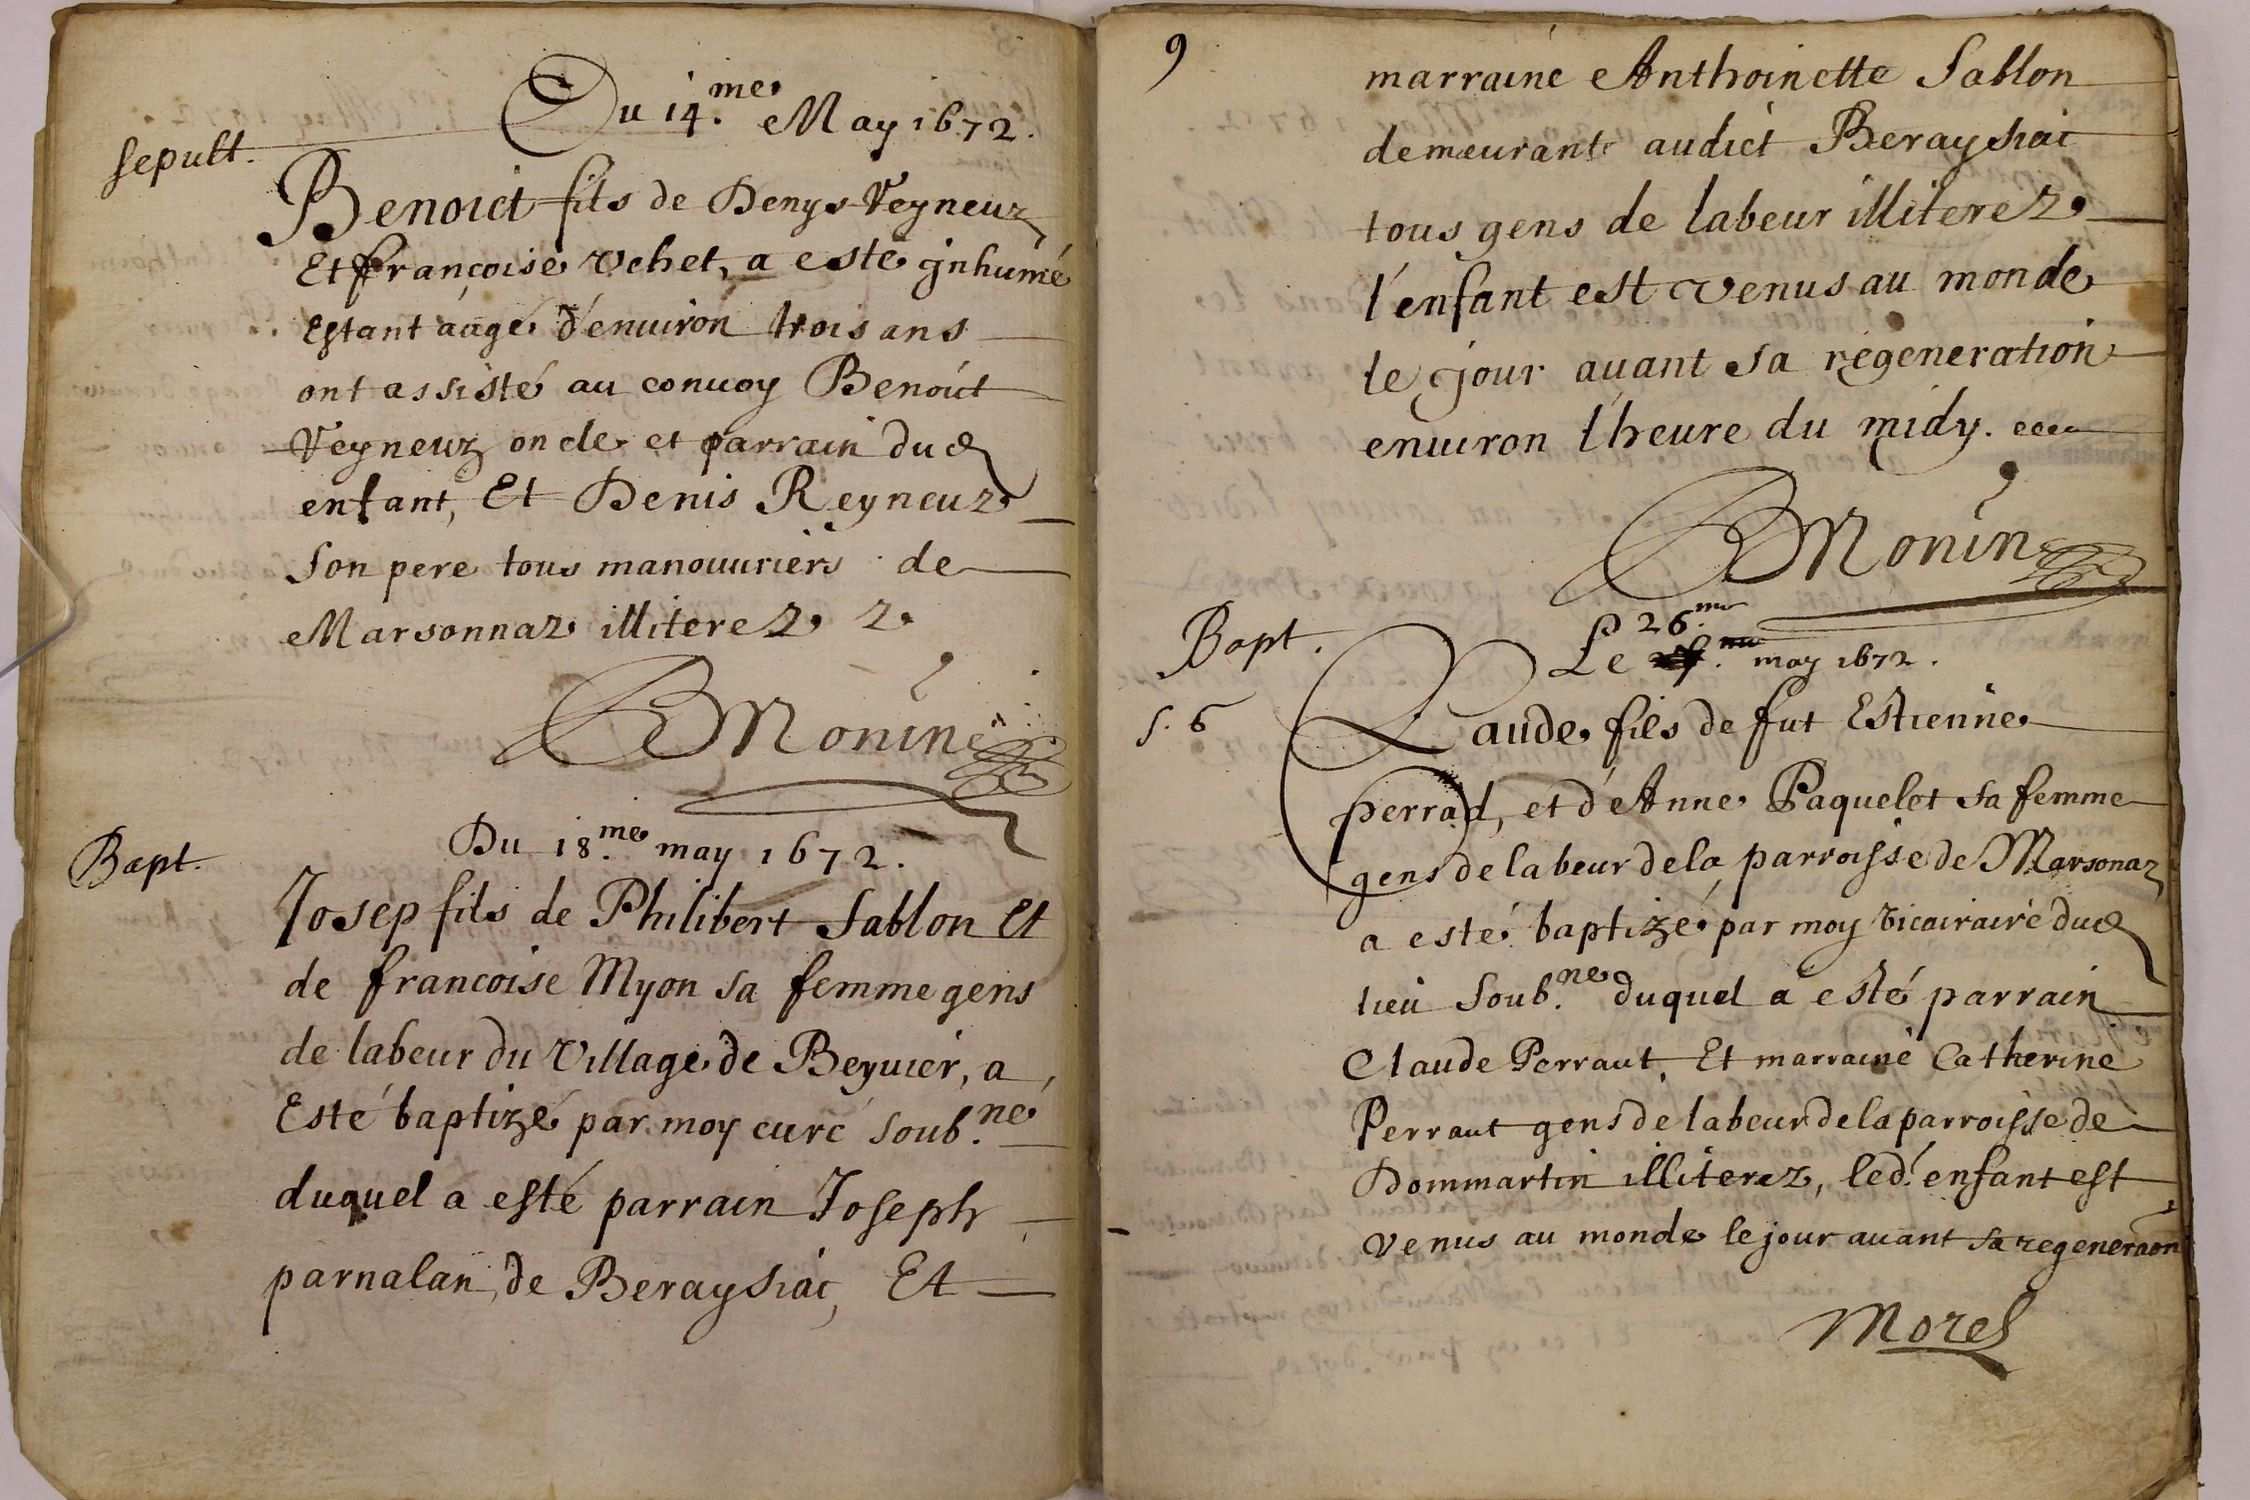 Du 14.me May 1672.
sepult.
Benoict fils de Denys Veyneuz
Et françoise Vchet, a esté jnhumé
Estant aagé d'enuiron trois ans
ont assisté au conuoy Benoict
Veyneuz oncle et parrain dud
enfant, Et Denis Reyneuz
Son pere tous manouuriers de
Marsonnaz illiterez
BMonin
Du 18.me may 1672.
Bapt.
Josep fils de Philibert Sablon Et
de francoise Myon sa femme gens
de labeur du Village de Beyuier, a
Esté baptizé par moy curé soub.né
duquel a esté parrain Joseph
parnalan, de Beraysiac, Et
9
marraine Anthoinette Sablon
demeurant audict Beraysiac
tous gens de labeur illiterez
l'enfant est venus au monde
le jour auant sa regeneration
enuiron l'heure du midy.
BMonin
Bapt.
Le 26.me may 1672.
s. 6
Claude fils de fut Estienne
perrad, et d'Anne Paquelet sa femme
gens de labeur de la parroisse de Marsonaz
a esté baptizé par moy vicairaire dud
lieu Soub.né duquel a esté parrain
Claude Perraut, Et marraine Catherine
Perraut gens de labeur de la parroisse de
Dommartin illiterez, led. enfant est
Venus au monde le jour auant sa regeneraon
Morel